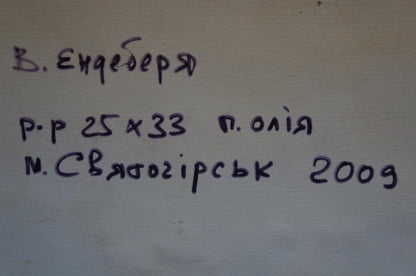 В. Ендеберя
р-р 25 х 33 п. олія
м. Святогірськ 2009